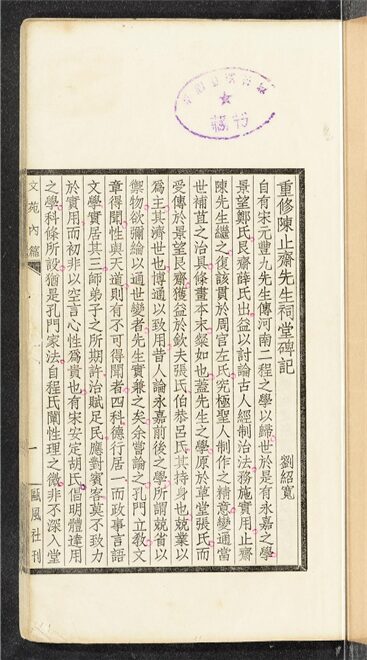 重修陳止齋先生祠堂碑記
劉紹寬
自有宋元豐九先生傳河南二程之學以歸世於是有永嘉之學
景望鄭氏艮齋薛氏出益以討論古人經制治法務施實用止齋
陳先生繼之復該貫於周官左氏究極聖人制作之精意變通當
世補苴之治具條畫本末粲如也蓋先生之學原於草堂張氏而
愛傳於景望艮齋獲益於欽夫張氏伯恭呂氏其持身也兢業以
為主其濟世也博通以致用昔人論永嘉前後之學所謂兢省以
禦物欲彌綸以通世變者先生實兼之矣余嘗論之孔門立教文
章得聞性與天道則有不可得聞者四科德行居一而政事言語
文學實居其三師弟子之所期許治賦足民應對賓客莫不致力
於實用而初非以空言心性為貴也有宋安定胡氏倡明體達用
之學科條所設猶是孔門家法自程氏闡性理之微非不深入堂
文苑內篇
一
甌風社刊